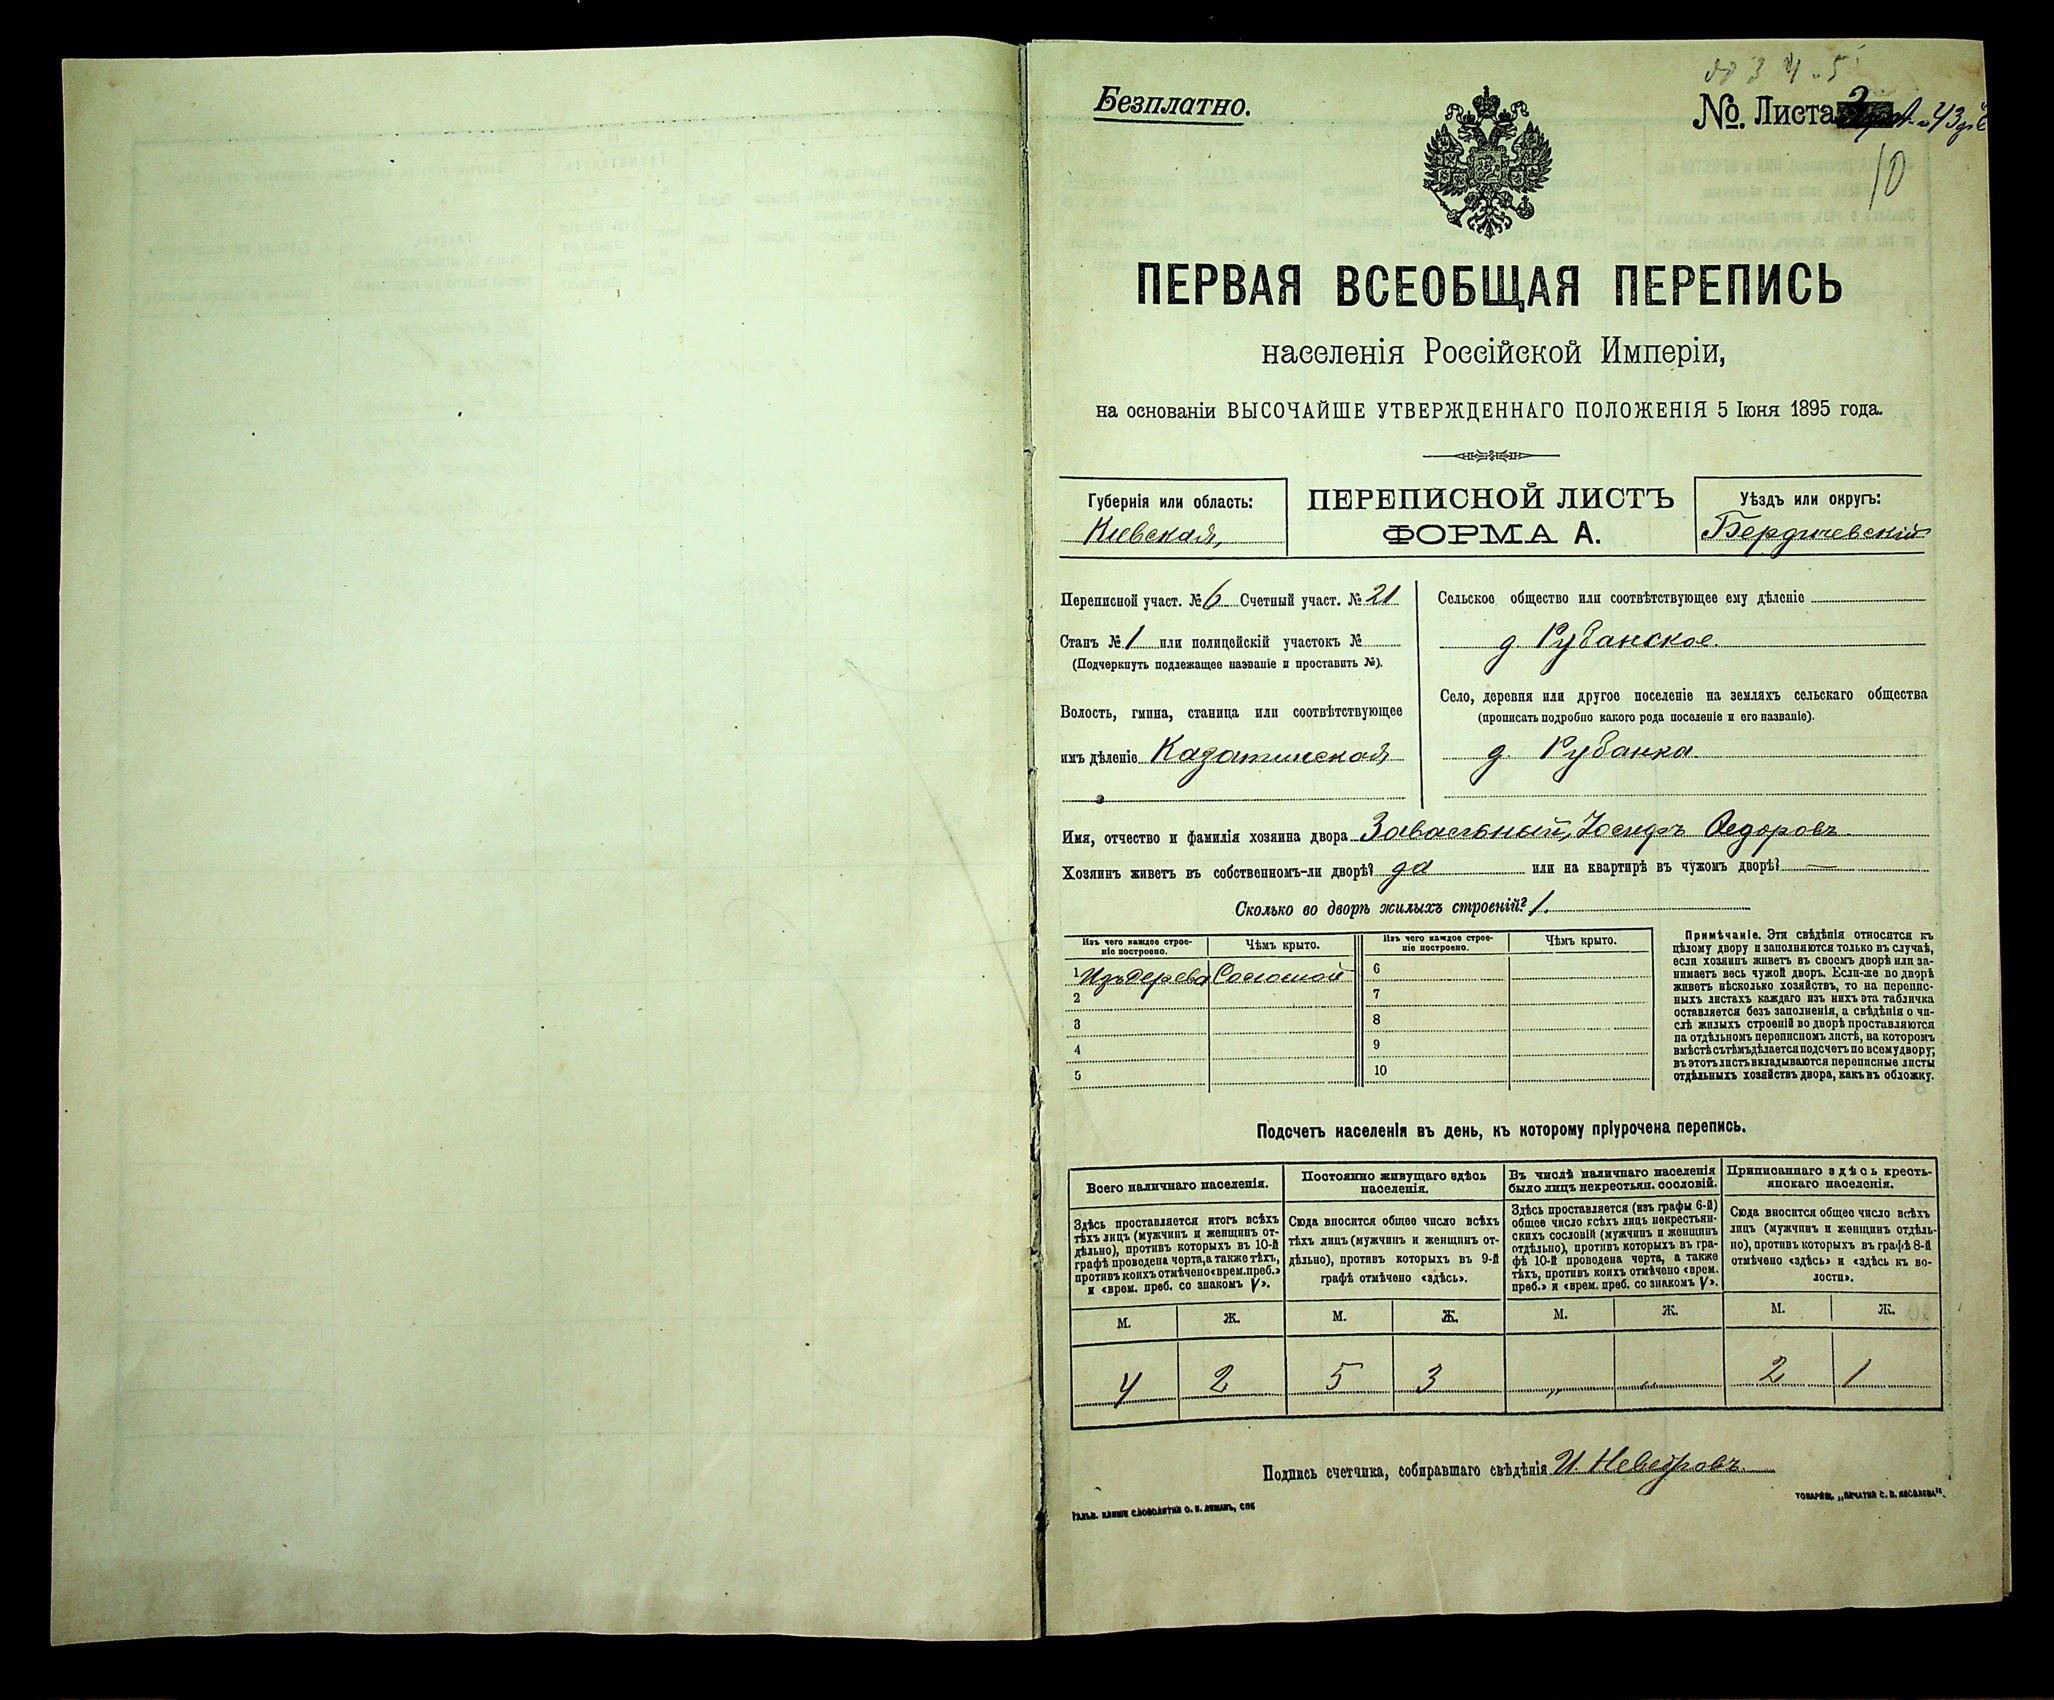 Безплатно.
№ Листа
10
ПЕРВАЯ ВСЕОБЩАЯ ПЕРЕПИСЬ
населенія Россійской Имперіи,
на основаніи ВЫСОЧАЙШЕ УТВЕРЖДЕННАГО ПОЛОЖЕНІЯ 5 Іюня 1895 года.
Губернія или область:
Кіевская,
ПЕРЕПИСНОЙ ЛИСТЪ
ФОРМА А.
Уѣздъ или округъ:
Бердичевскій
Переписной участ. № 6 Счетный участ. № 21
Станъ № 1 или полицейскій участокъ №
(Подчеркнуть подлежащее названіе и проставить №).
Волость, гмина, станица или соотвѣтствующее
имъ дѣленіе Казатинская
Сельское общество или соотвѣтствующее ему дѣленіе
д. Рубанское.
Село, деревня или другое поселеніе на земляхъ сельскаго общества
(прописать подробно какого рода поселеніе и его названіе).
д. Рубанка.
Имя, отчество и фамилія хозяина двора Завальный, Іосифъ Ѳедоровъ
Хозяинъ живетъ въ собственномъ-ли дворѣ? да или на квартирѣ въ чужомъ дворѣ? —
Сколько во дворѣ жилыхъ строеній? 1.
Изъ чего каждое строе-
ніе построено.
Чѣмъ крыто.
Изъ чего каждое строе-
ніе построено.
Чѣмъ крыто.
1 Изъ дерева Соломой 6
2 7
3 8
4 9
5 10
Примѣчаніе. Эти свѣдѣнія относятся къ
цѣлому двору и заполняются только въ случаѣ,
если хозяинъ живетъ въ своемъ дворѣ или за-
нимаетъ весь чужой дворъ. Если-же во дворѣ
живетъ нѣсколько хозяйствъ, то на перепис-
ныхъ листахъ каждаго изъ нихъ эта табличка
оставляется безъ заполненія, а свѣдѣнія о чи-
слѣ жилыхъ строеній во дворѣ проставляются
на отдѣльномъ переписномъ листѣ, на которомъ
вмѣстѣ съ тѣмъ дѣлается подсчетъ по всему двору;
въ этотъ листъ вкладываются переписные листы
отдѣльныхъ хозяйствъ двора, какъ въ обложку.
Подсчетъ населенія въ день, къ которому пріурочена перепись.
Всего наличнаго населенія.
Постоянно живущаго здѣсь
населенія.
Въ числѣ наличнаго населенія
было лицъ некрестьян. сословій.
Приписаннаго здѣсь кресть-
янскаго населенія.
Здѣсь проставляется итогъ всѣхъ
тѣхъ лицъ (мужчинъ и женщинъ от-
дѣльно), противъ которыхъ въ 10-й
графѣ проведена черта, а также тѣхъ,
противъ коихъ отмѣчено «врем. преб.»
и «врем. преб. со знакомъ V».
Сюда вносится общее число всѣхъ
тѣхъ лицъ (мужчинъ и женщинъ от-
дѣльно), противъ которыхъ въ 9-й
графѣ отмѣчено «здѣсь».
Здѣсь проставляется (изъ графы 6-й)
общее число всѣхъ лицъ некрестьян-
скихъ сословій (мужчинъ и женщинъ
отдѣльно), противъ которыхъ въ гра-
фѣ 10-й проведена черта, а также
тѣхъ, противъ коихъ отмѣчено «врем.
преб.» и «врем. преб. со знакомъ V».
Сюда вносится общее число всѣхъ
лицъ (мужчинъ и женщинъ отдѣль-
но), противъ которыхъ въ графѣ 8-й
отмѣчено «здѣсь» и «здѣсь къ во-
лости».
М. Ж. М. Ж. М. Ж. М. Ж.
4 2 5 3 „ „ 2 1
Подпись счетчика, собиравшаго свѣдѣнія И. Неведровъ
ГАЛЬВ. КЛИШЕ СЛОВОЛИТНИ О. И. ЛЕМАНЪ, СПБ
ТОВАРИЩ. „ПЕЧАТНЯ С. П. ЯКОВЛЕВА".